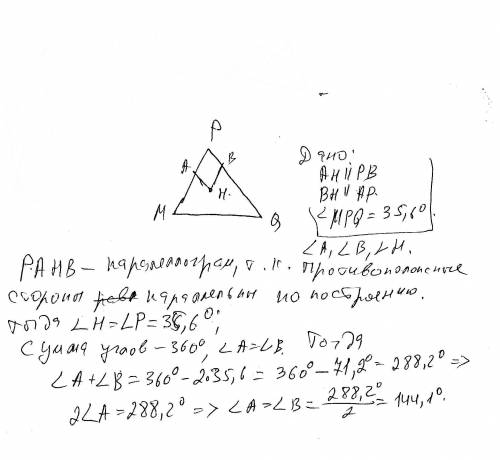 P
A
B
H.
M
Q
Дано:
AH || PB
BH || AP.
∠MPQ = 35,6°.
∠A, ∠B, ∠H.
PAHB – параллелограм, т. к. противоположные
стороны параллельны по построению.
тогда ∠H = ∠P = 35,6°;
Сумма углов – 360°, ∠A = ∠B. Тогда
∠A + ∠B = 360° - 2·35,6 = 360° - 71,2° = 288,2° =>
2∠A = 288,2° => ∠A = ∠B = 288,2°/2 = 144,1°.